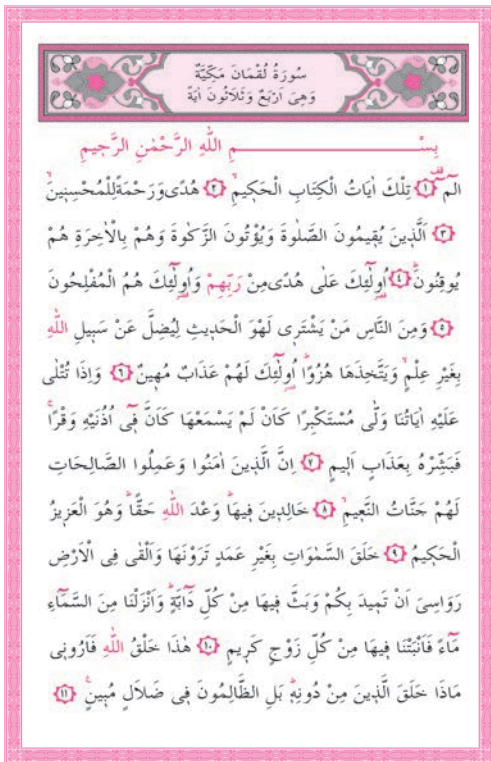 سُورَةُ لُقْمَانَ مَكِّيَّةٌ
وَهِىَ اَرْبَعٌ وَثَلَاثُونَ اٰيَةً
بِسْمِ اللّٰهِ الرَّحْمٰنِ الرَّحِيمِ
الٓمٓ ﴿١﴾ تِلْكَ اٰيَاتُ الْكِتَابِ الْحَكِيمِۙ ﴿٢﴾ هُدًى وَرَحْمَةً لِلْمُحْسِنِينَۙ
﴿٣﴾ اَلَّذِينَ يُقِيمُونَ الصَّلٰوةَ وَيُؤْتُونَ الزَّكٰوةَ وَهُمْ بِالْاٰخِرَةِ هُمْ
يُوقِنُونَۜ ﴿٤﴾ اُو۬لٰٓئِكَ عَلٰى هُدًى مِنْ رَبِّهِمْ وَاُو۬لٰٓئِكَ هُمُ الْمُفْلِحُونَ
﴿٥﴾ وَمِنَ النَّاسِ مَنْ يَشْتَرِى لَهْوَ الْحَدِيثِ لِيُضِلَّ عَنْ سَبِيلِ اللّٰهِ
بِغَيْرِ عِلْمٍۗ وَيَتَّخِذَهَا هُزُوًاۜ اُو۬لٰٓئِكَ لَهُمْ عَذَابٌ مُهِينٌ ﴿٦﴾ وَاِذَا تُتْلٰى
عَلَيْهِ اٰيَاتُنَا وَلّٰى مُسْتَكْبِرًا كَاَنْ لَمْ يَسْمَعْهَا كَاَنَّ فِٓى اُذُنَيْهِ وَقْرًاۚ
فَبَشِّرْهُ بِعَذَابٍ اَلِيمٍ ﴿٧﴾ اِنَّ الَّذِينَ اٰمَنُوا وَعَمِلُوا الصَّالِحَاتِ
لَهُمْ جَنَّاتُ النَّعِيمِۙ ﴿٨﴾ خَالِدِينَ فِيهَاۜ وَعْدَ اللّٰهِ حَقًّاۜ وَهُوَ الْعَزِيزُ
الْحَكِيمُ ﴿٩﴾ خَلَقَ السَّمٰوَاتِ بِغَيْرِ عَمَدٍ تَرَوْنَهَا وَاَلْقٰى فِى الْاَرْضِ
رَوَاسِىَ اَنْ تَمِيدَ بِكُمْ وَبَثَّ فِيهَا مِنْ كُلِّ دَٓابَّةٍۜ وَاَنْزَلْنَا مِنَ السَّمَٓاءِ
مَٓاءً فَاَنْبَتْنَا فِيهَا مِنْ كُلِّ زَوْجٍ كَرِيمٍ ﴿١٠﴾ هٰذَا خَلْقُ اللّٰهِ فَاَرُونِى
مَاذَا خَلَقَ الَّذِينَ مِنْ دُونِهِۜ بَلِ الظَّالِمُونَ فِى ضَلَالٍ مُبِينٍ۟ ﴿١١﴾